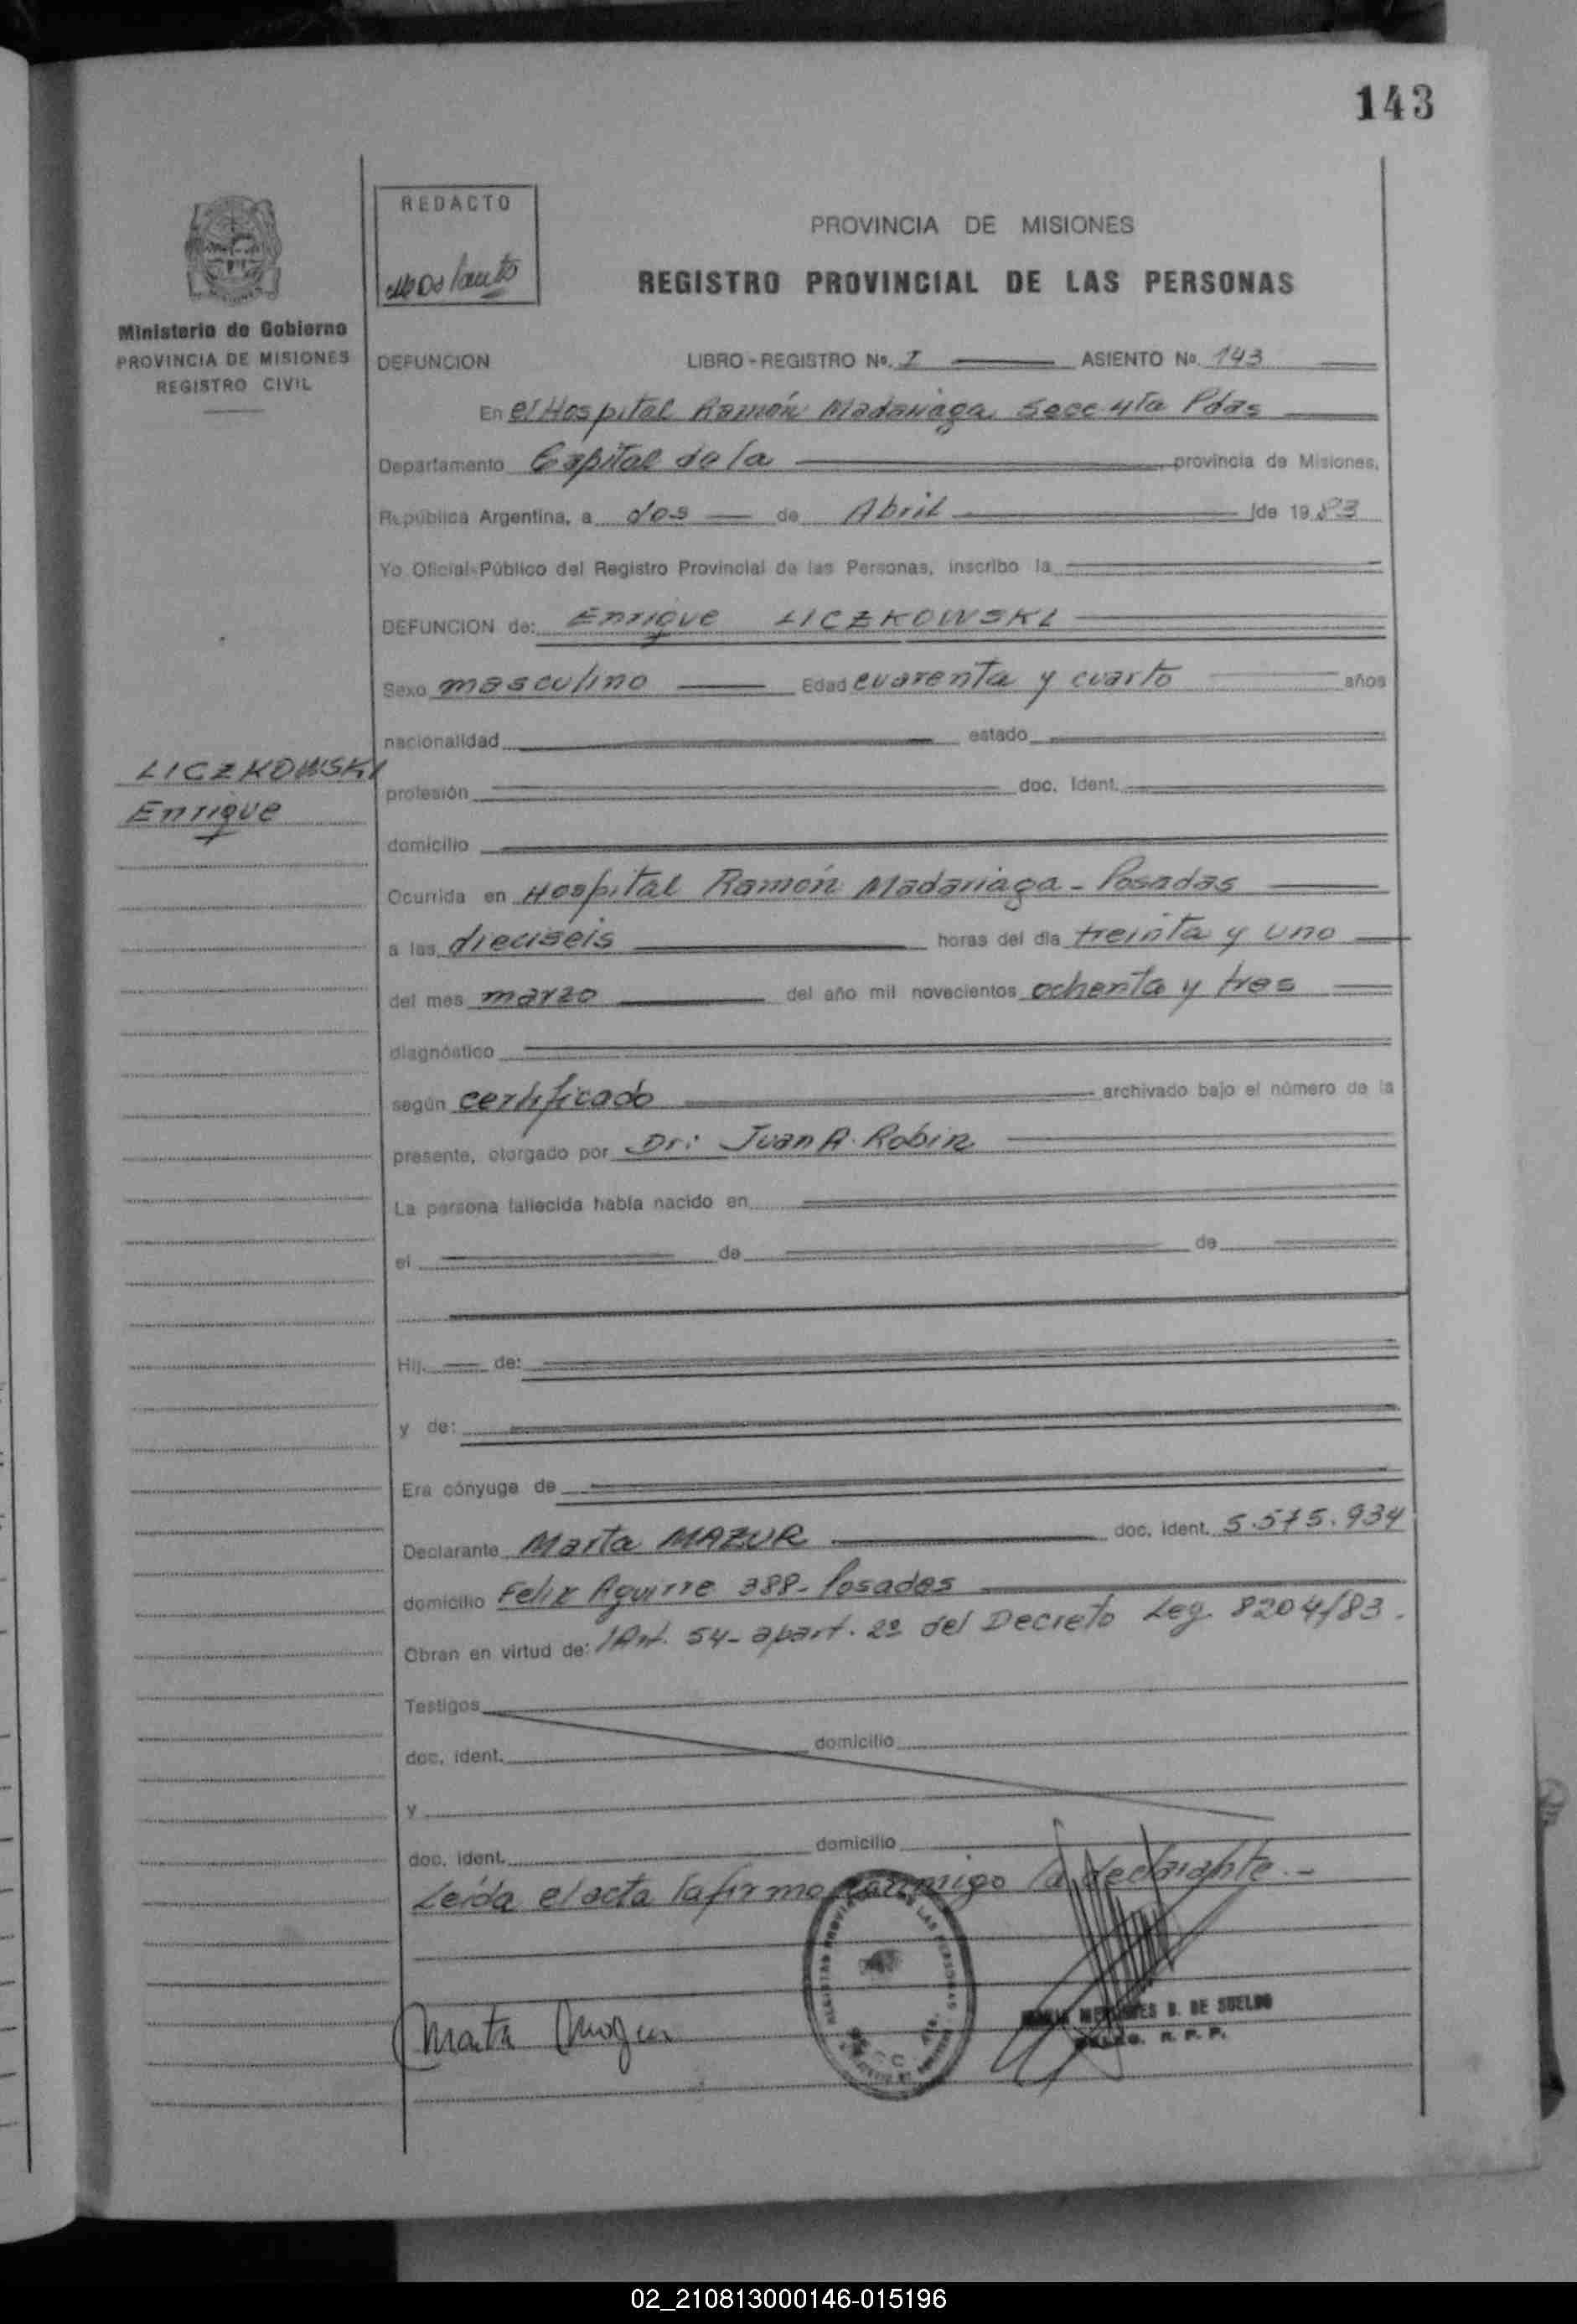 143
REDACTO
PROVINCIA DE MISIONES
REGISTRO PROVINCIAL DE LAS PERSONAS
Ministerio de Gobierno
PROVINCIA DE MISIONES
REGISTRO CIVIL
DEFUNCION LIBRO-REGISTRO No. I ASIENTO No. 143
En el Hospital Ramón Madariaga Secc 4ta Pdas
Departamento Capital de la provincia de Misiones,
República Argentina, a dos de Abril de 1983
Yo Oficial Público del Registro Provincial de las Personas, inscribo la
DEFUNCION de: Enrique LICZKOWSKI
Sexo masculino Edad cuarenta y cuarto años
nacionalidad estado
LICZKOWSKI
Enrique
profesión doc. Ident.
domicilio
Ocurrida en Hospital Ramón Madariaga - Posadas
a las dieciseis horas del día treinta y uno
del mes marzo del año mil novecientos ochenta y tres
diagnóstico
según certificado archivado bajo el número de la
presente, otorgado por Dr: Juan A. Robin
La persona fallecida había nacido en
el de de
Hij de:
y de:
Era cónyuge de
Declarante Marta MAZUR doc. ident. 5.575.934
domicilio Felix Aguirre 388- Posadas
Obran en virtud de: Art. 54- apart. 2º del Decreto Ley 8204/83.
Testigos
doc. ident. domicilio
y
doc. ident. domicilio
Leida el acta la firmo conmigo la declarante.-
Marta
B. DE SUELDO
R. P. P.
02_210813000146-015196